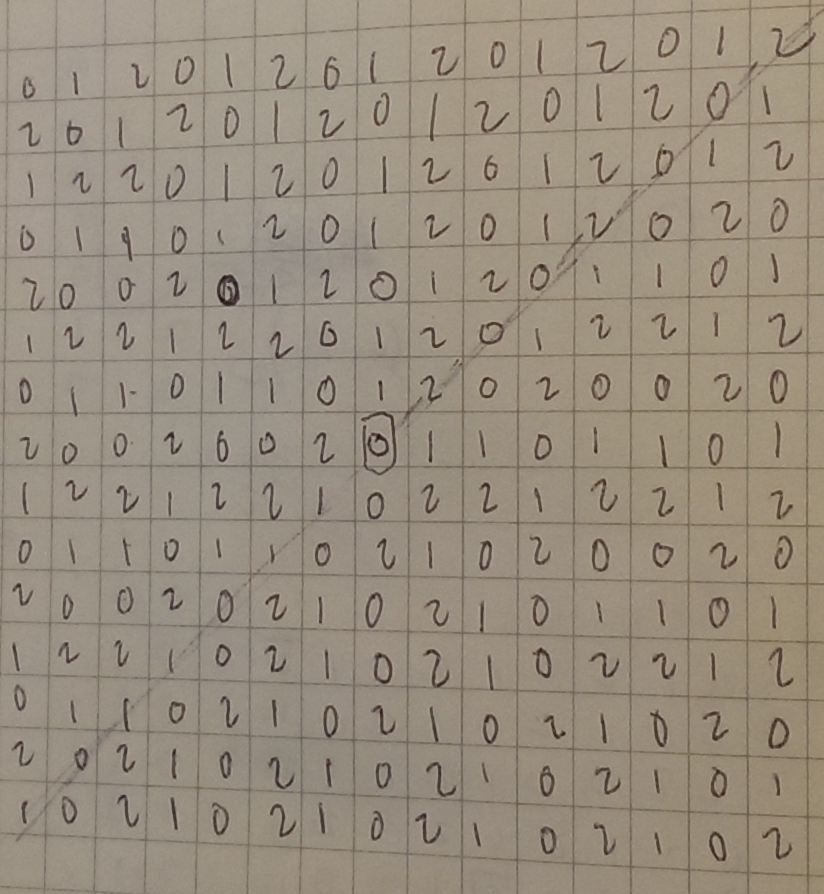 0 1 2 0 1 2 0 1 2 0 1 2 0 1 2
2 0 1 2 0 1 2 0 1 2 0 1 2 0 1
1 2 2 0 1 2 0 1 2 0 1 2 0 1 2
0 1 1 0 1 2 0 1 2 0 1 2 0 2 0
2 0 0 2 0 1 2 0 1 2 0 1 1 0 1
1 2 2 1 2 2 0 1 2 0 1 2 2 1 2
0 1 1 0 1 1 0 1 2 0 2 0 0 2 0
2 0 0 2 0 0 2 0 1 1 0 1 1 0 1
1 2 2 1 2 2 1 0 2 2 1 2 2 1 2
0 1 1 0 1 1 0 2 1 0 2 0 0 2 0
2 0 0 2 0 2 1 0 2 1 0 1 1 0 1
1 2 2 1 0 2 1 0 2 1 0 2 2 1 2
0 1 1 0 2 1 0 2 1 0 2 1 0 2 0
2 0 2 1 0 2 1 0 2 1 0 2 1 0 1
1 0 2 1 0 2 1 0 2 1 0 2 1 0 2